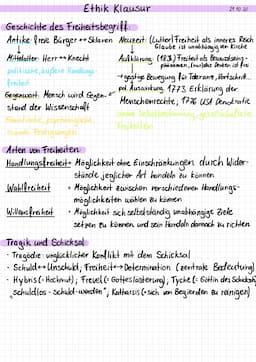 Ethik Klausur
Geschichte des Freiheitsbegriff
Antike: freie Bürger ↔ Sklaven
Mittelalter: Herr ↔ Knecht
politische, äußere Handlungs-
freiheit
Gegenwart: Mensch wird Gegen-
stand der Wissenschaft
Neuzeit: (Luther) Freiheit als inneres Reich
Glaube ist unabhängig der Kirche
Aufklärung: Freiheit als
→ geistige Bewegung für Toleranz, Fortschritt,
pol. Ausweitung, 1773 Erklärung der
Menschenrechte, 1776 USA Demokratie
innere Selbstbestimmung, gesellschaftliche
Freiheiten
Arten von Freiheiten
Handlungsfreiheit = Möglichkeit ohne Einschränkungen durch Wider-
stände jeglicher Art handeln zu können
Wahlfreiheit = Möglichkeit zwischen verschiedenen Handlungs-
möglichkeiten wählen zu können
Willensfreiheit = Möglichkeit sich selbstständig unabhängige Ziele
setzen zu können und sein Handeln danach zu richten
Tragik und Schicksal
- Tragödie: unglücklicher Konflikt mit dem Schicksal
- Schuld ↔ Unschuld, Freiheit ↔ Determination (zentrale Bedeutung)
- Hybris (= Hochmut), Frevel (= Gotteslästerung), Tyche (= Göttin des Schicksals)
"schuldlos-schuld-werden", Katharsis (= sich von Begierden zu reinigen)